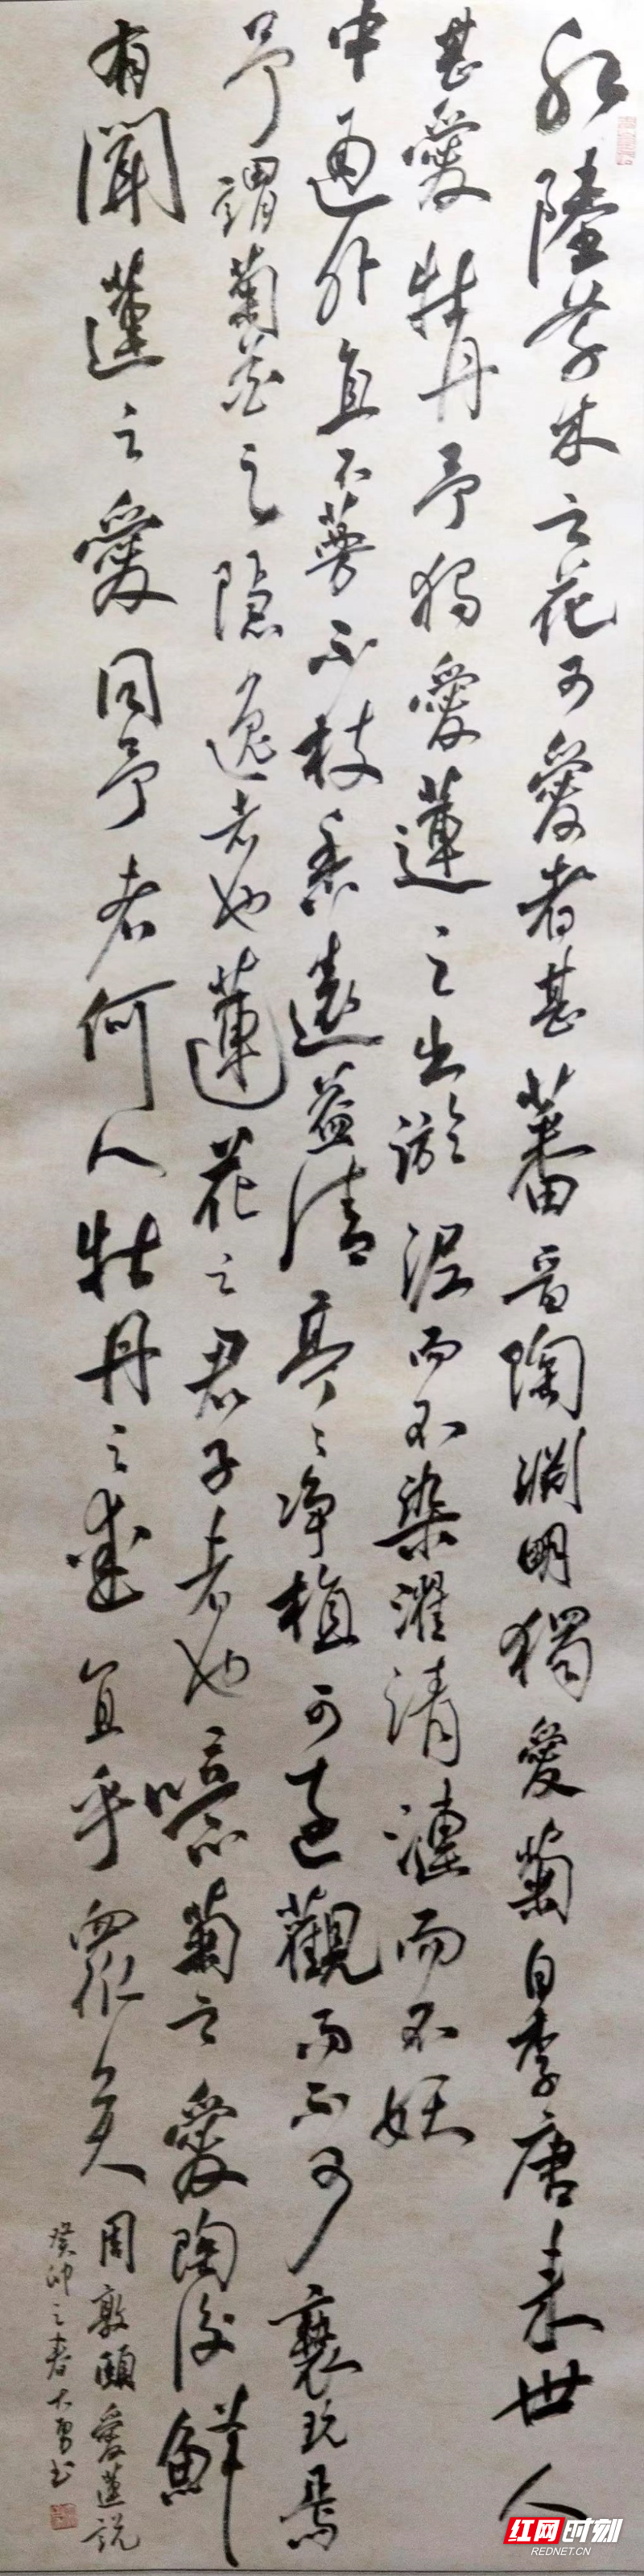 水陸草木之花可愛者甚蕃晉陶淵明獨愛菊自李唐來世人
甚愛牡丹予獨愛蓮之出淤泥而不染濯清漣而不妖
中通外直不蔓不枝香遠益清亭〻净植可遠觀而不可褻玩焉
予謂菊花之隱逸者也蓮花之君子者也噫菊之愛陶後鮮
有聞蓮之愛同予者何人牡丹之愛宜乎眾矣
周敦頤愛蓮説
癸卯之春大勇书
红网时刻
REDNET.CN